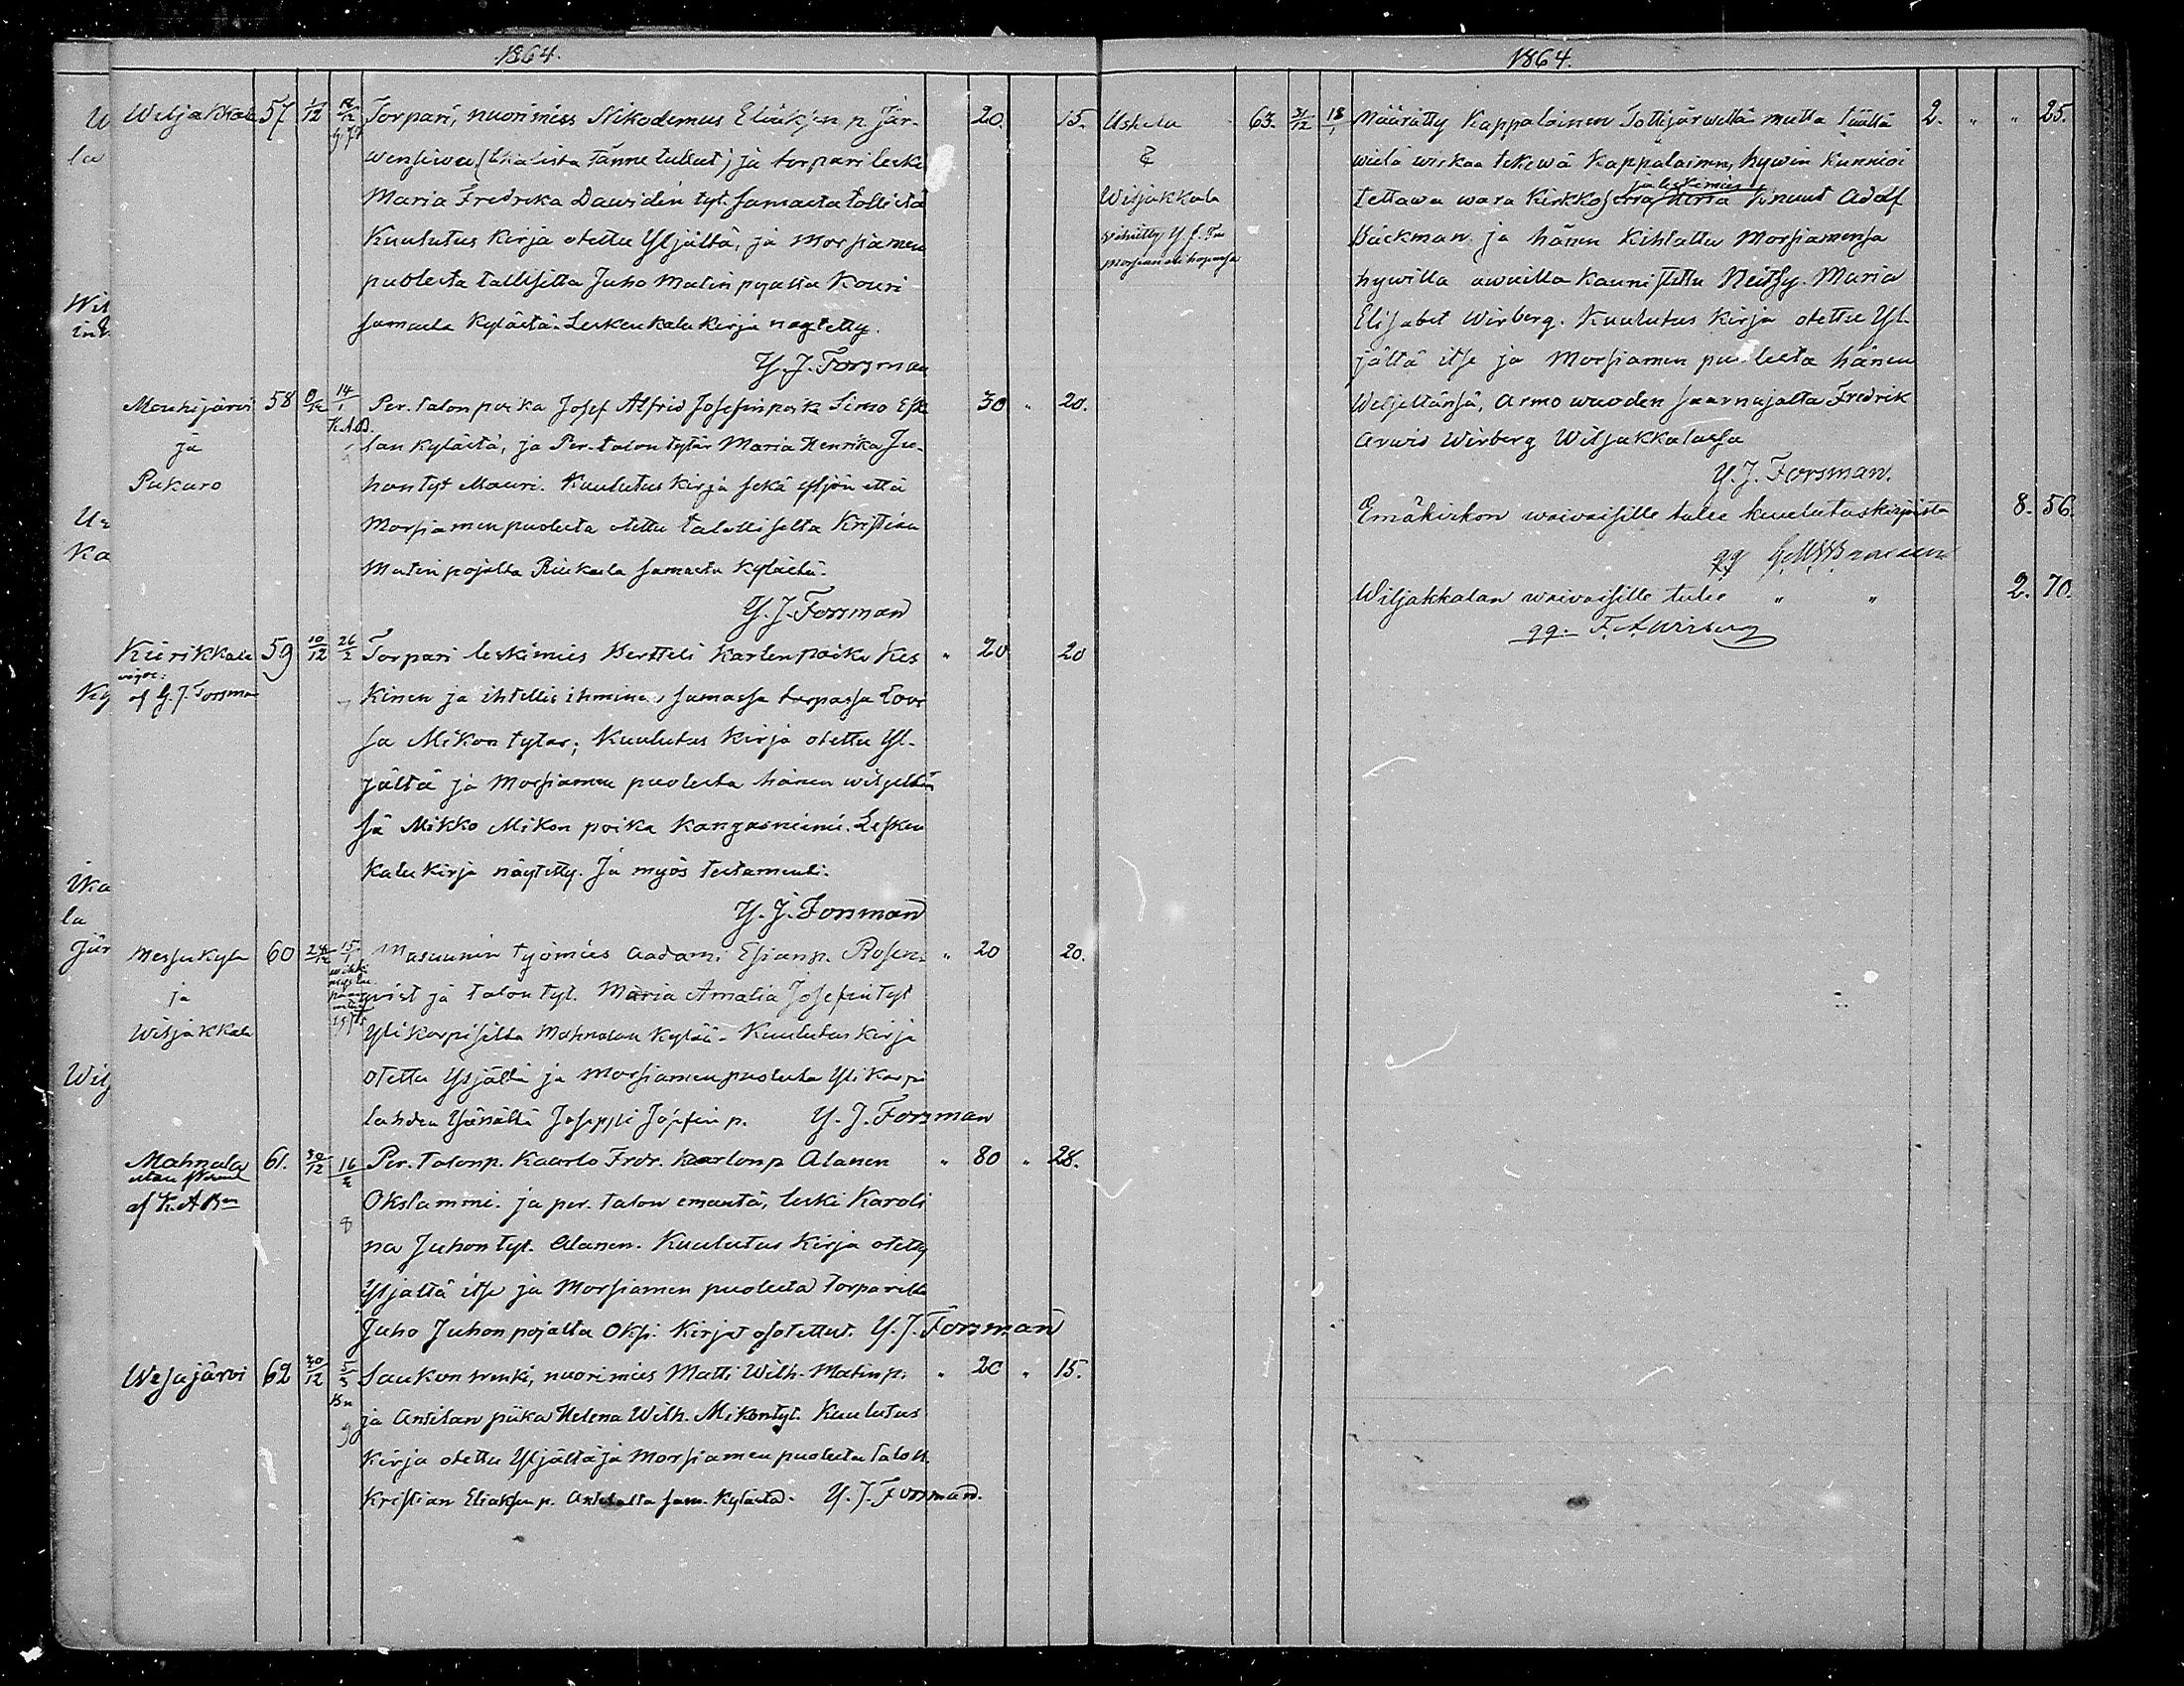 1864.
Wiljakkala 57 1/12 Torpari, nuorimies Nikodemus Eliakjen p. Jär- 20. 15.
wensiwu tänne tullut) ja torpari leski
Maria Fredrika Dawidin tyt. samasta
Kuulutus kirja otettu Yljältä, ja Morsiamen
puolesta tallisilta Juho Matin pojalta Kouri
samasta Kylästä. Lesken kalu kirja näytetty.
Y. J. Forsman
Mouhijärvi 58 14/1 Per. talon poika Josef Alfrid Josefin poika Simo Eske 30 " 20.
ja lan kylästä, ja Per. talon tytär Maria Henrika Ju-
Pukaro hon tyt Mauri. Kuulutus kirja sekä yljän että
Morsiamen puolesta otettu talolliselta Kristian
Matin pojalta samasta Kylästä.
Y. J. Forsman
Kiirikkala 59 10/12 26/2 Torpari leskimies Bertteli Karlen poika Kes " 20 20
af G. J. Forsman kinen ja ihtellis ihminen samassa torpassa Lovi
sa Mikon tytar; Kuulutus kirja otettu Yl-
jältä ja Morsiamen puolesta hänen weljeltän
sä Mikko Mikon poika Kangasniemi. Lesken
Kalu kirja näytetty. Ja myös testamenti.
Y. J. Forsman
Messukylä 60 15/1 Masuunin työmies Aadam Esian p. Rosen- " 20 20.
ja qvist ja talon tyt. Maria Amalia Josefin tyt
Wiljakkala Ylikorpisilta Mahnalan Kylää. Kuulutus kirja
otettu Yljältä ja Morsiamen puolesta Ylikorpi
lahden Isänältä Joseppi Josefin p. Y. J. Forsman
Mahnala 61. 30/12 16/2 Per. talonp. Kaarlo Frdr. Kaarlonp Alanen " 80 " 28.
af K. A Bn Okslammi. ja per. talon emäntä, leski Karoli
na Juhon tyt. Alanen. Kuulutus Kirja otettu
Yljältä itse ja Morsiamen puolesta torparilta
Juho Juhon pojalta Oksi. Kirjat osotettut. Y. J. Forsman
Wesajärvi 62 30/12 5/3 Saukon renki, nuorimies Matti Wilh. Matin p. " 20 " 15.
Bn ja Antilan piika Helena Wilh. Mikontyt. Kuulutus
9 Kirja otettu Yljältä ja Morsiamen puolesta taloll.
Kristian Eliaksen p. Anttilalta sam. Kylästä. Y. J. Forsman.
1864.
Uskela 63. 31/12 18/1 Määrätty Kappalainen Tottijärwellä mutta täällä 2. " " 25.
& wielä wirkaa tekewä Kappalainen, hywin kunnioi
ja leskimies
Wiljakkala tettawa wara Kirkkoherra herra Knuut Adolf
wihitty Y J. Fn Bäckman ja hänen Kihlattu Morsiamensa
hywillä awuilla kaunistettu Neitsy Maria
Elisabet Wirberg. Kuulutus kirja otettu Yl-
jältä itse ja Morsiamen puolesta hänen
Weljeltänsä, Armo wuoden saarnajalta Fredrik
Arwid Wirberg Wiljakkalassa
Y. J. Forsman.
Emäkirkon waiwaisille tulee kuulutuskirjoista 8. 56.
qq
Wiljakkalan waiwaisille tulee " " 2. 70.
qq. F. A Wirberg